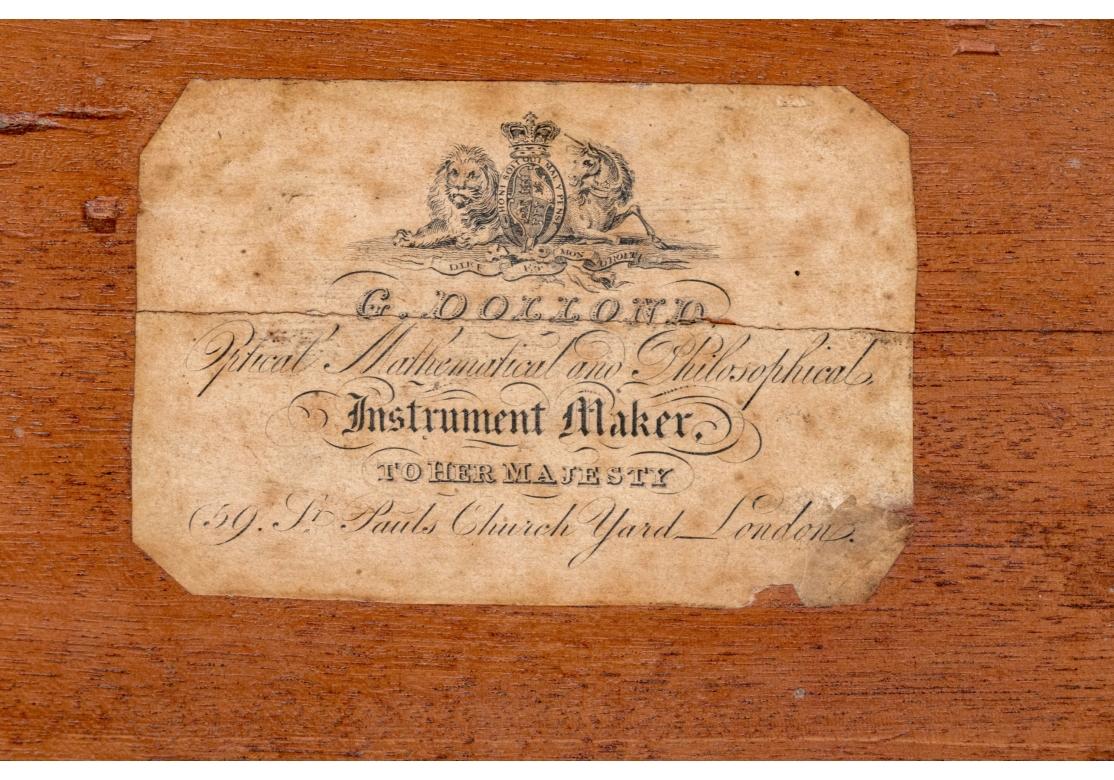 HONI SOIT QUI MAL Y PENSE
DIEU ET MON DROIT
G. DOLLOND.
Optical Mathematical and Philosophical,
Instrument Maker,
TO HER MAJESTY
59. St. Pauls Church Yard London.